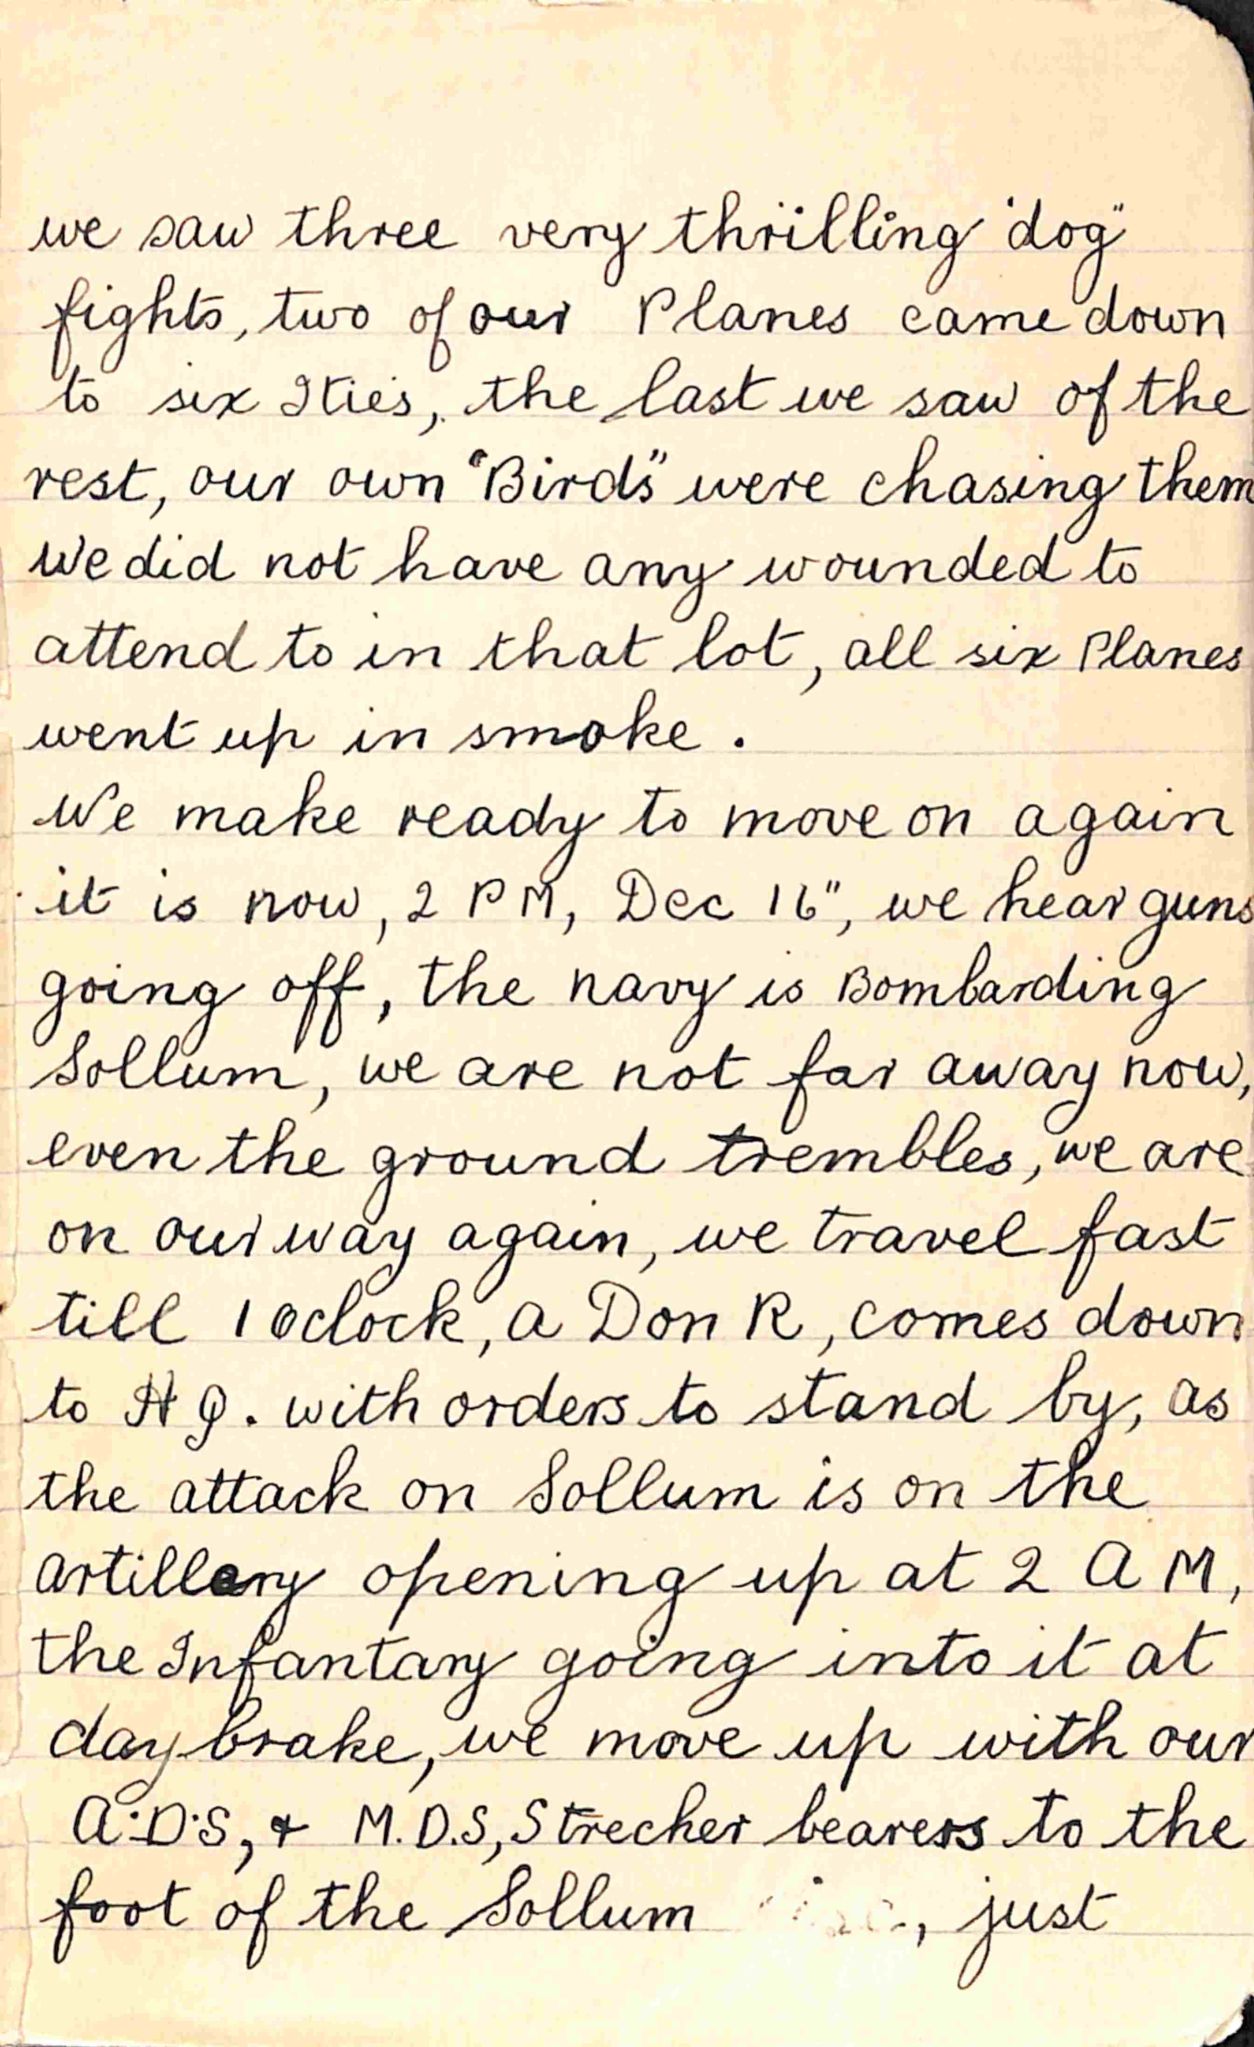 we saw three very thrilling "dog"
fights, two of our Planes came down
to six Ities, the last we saw of the
rest, our own "Birds" were chasing them
We did not have any wounded to
attend to in that lot, all six Planes
went up in smoke.
We make ready to move on again
it is now, 2 PM, Dec 16", we hear guns
going off, the navy is Bombarding
Sollum, we are not far away now,
even the ground trembles, we are
on our way again, we travel fast
till 1 Oclock, a Don R, comes down
to H Q. with orders to stand by, as
the attack on Sollum is on the
artillery opening up at 2 A M,
the Infantary going into it at
day brake, we move up with our
A.D.S, & M.D.S, Strecher bearers to the
foot of the Sollum , just